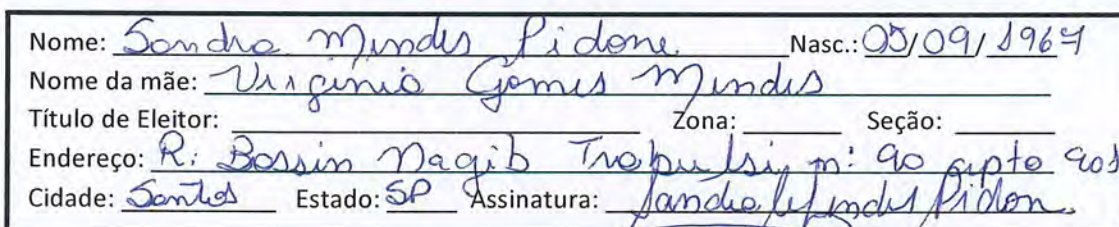 Nome: Sandra Mendes Pidone Nasc.: 05/09/1967
Nome da mãe: Virginia Gomes Mendes
Título de Eleitor: Zona: Seção:
Endereço: R: Bassin Nagib Trabulsi, nº 90 apto
Cidade: Santos Estado: SP Assinatura: Sandra Mendes Pidon